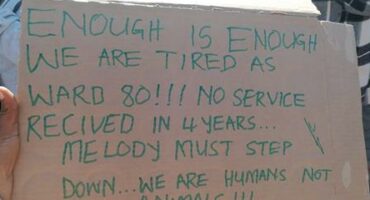 ENOUGH IS ENOUGH
WE ARE TIRED AS
WARD 80!!! NO SERVICE
RECIVED IN 4 YEARS...
MELODY MUST STEP
DOWN...WE ARE HUMANS NOT